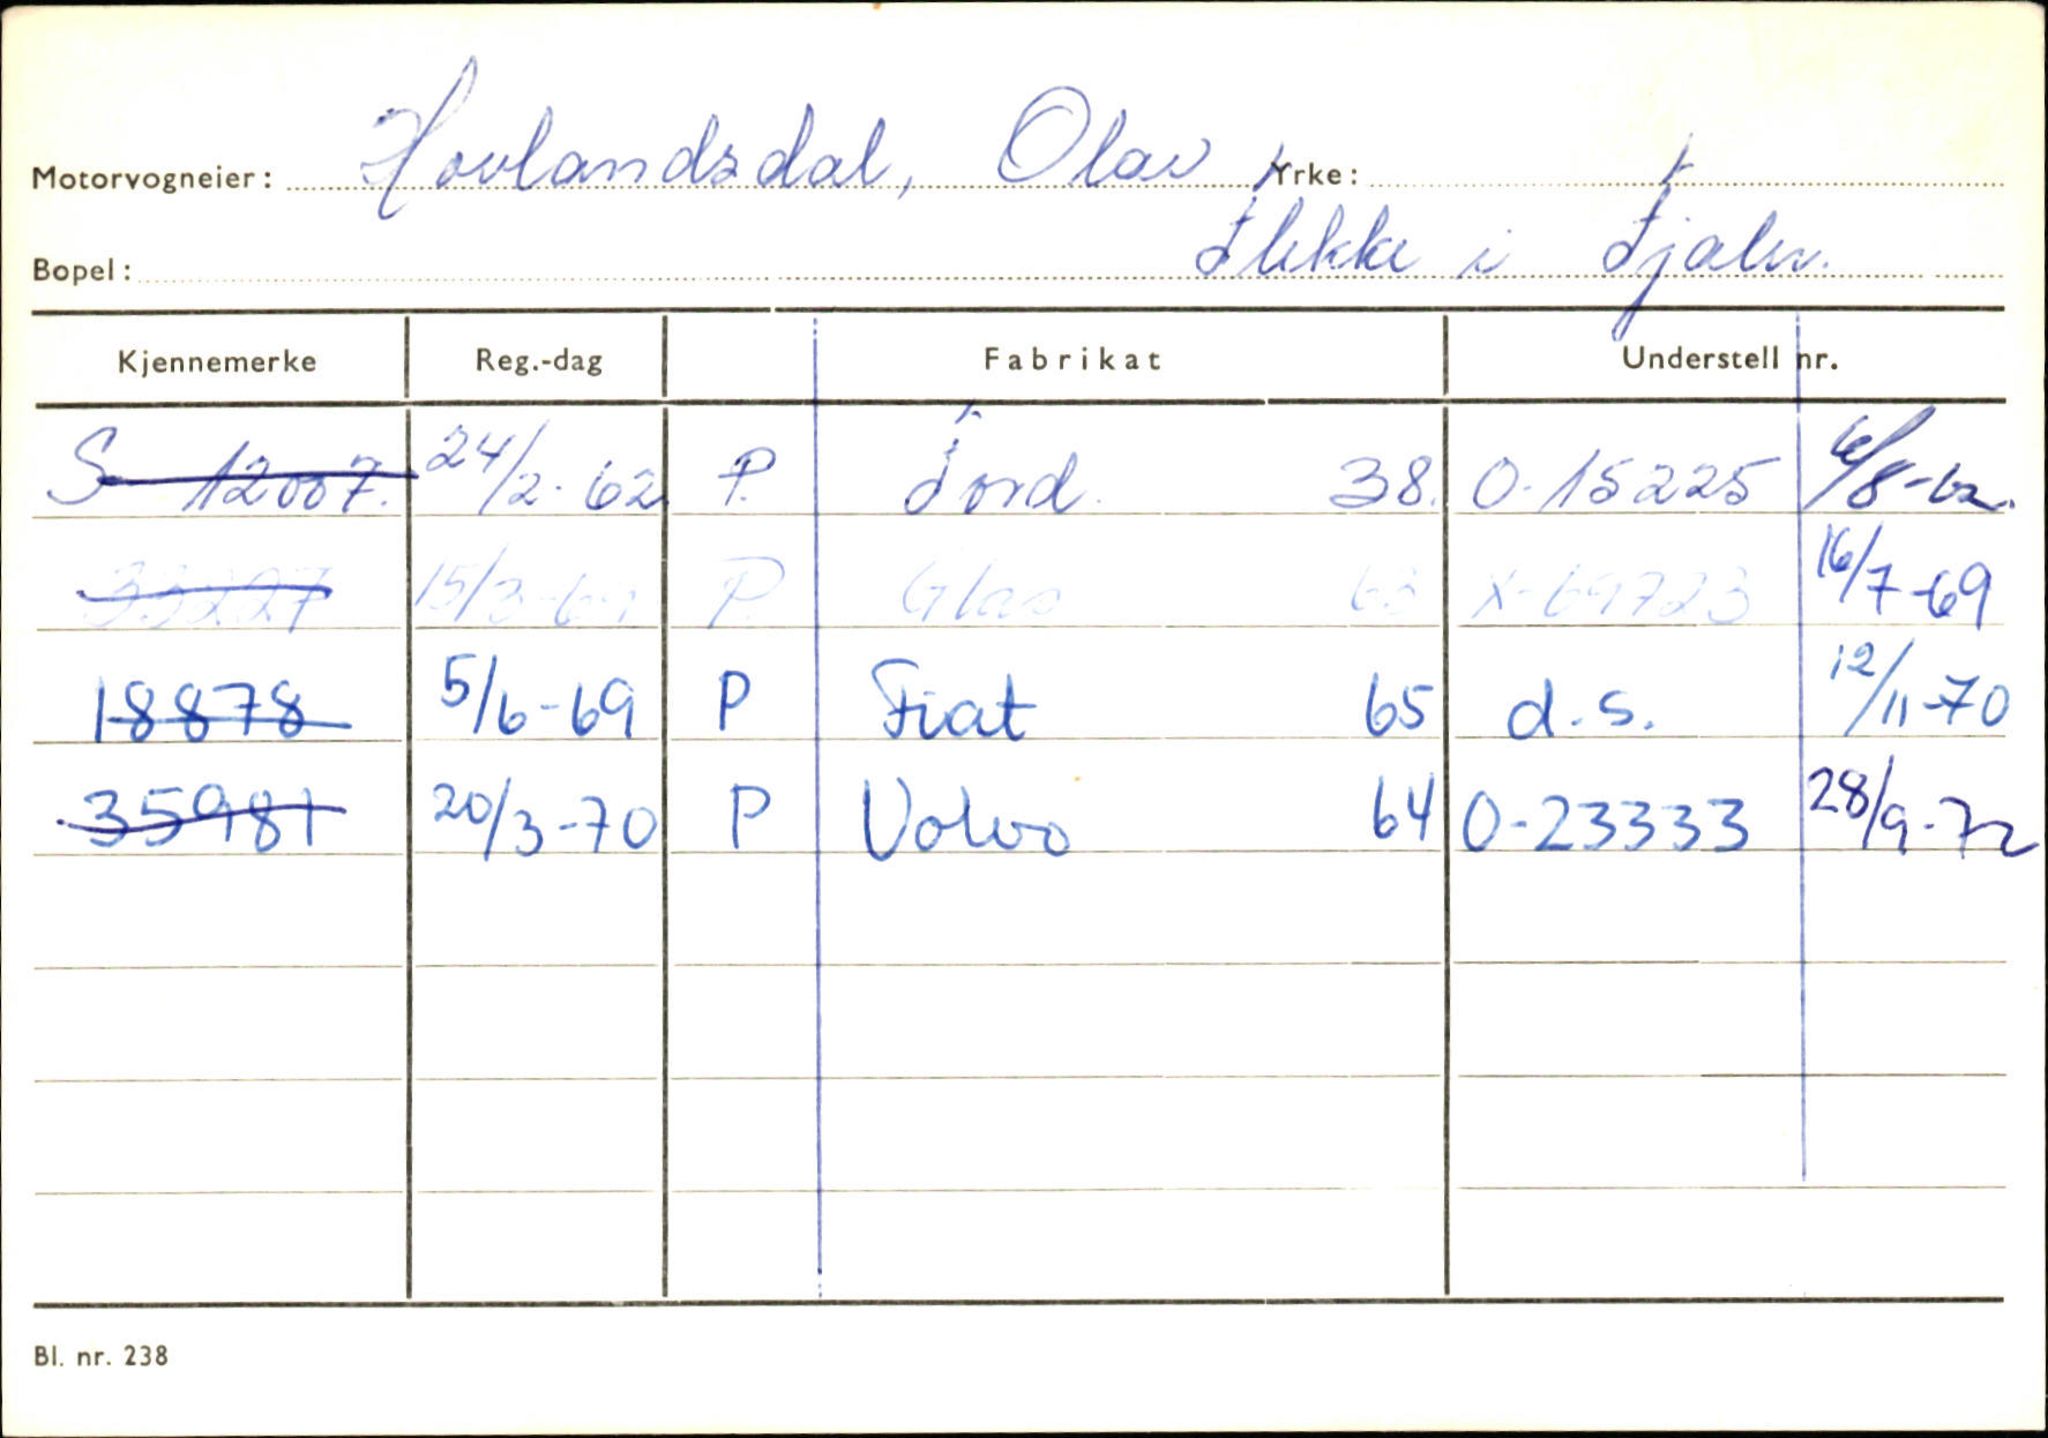 Motorvogneier: Hovlandsdal, Olav Yrke:
Bopel: Flekke i Fjaler.
Kjennemerke Reg.-dag Fabrikat Understell nr.
S 12007. 24/2-62 P. Ford. 38. O-15225 6/8-62.
33227 15/3- P. Glas 63 X-69723 16/7-69
18878 5/6-69 P Fiat 65 d.s. 12/11-70
35981 20/3-70 P Volvo 64 O-23333 28/9-72
Bl. nr. 238